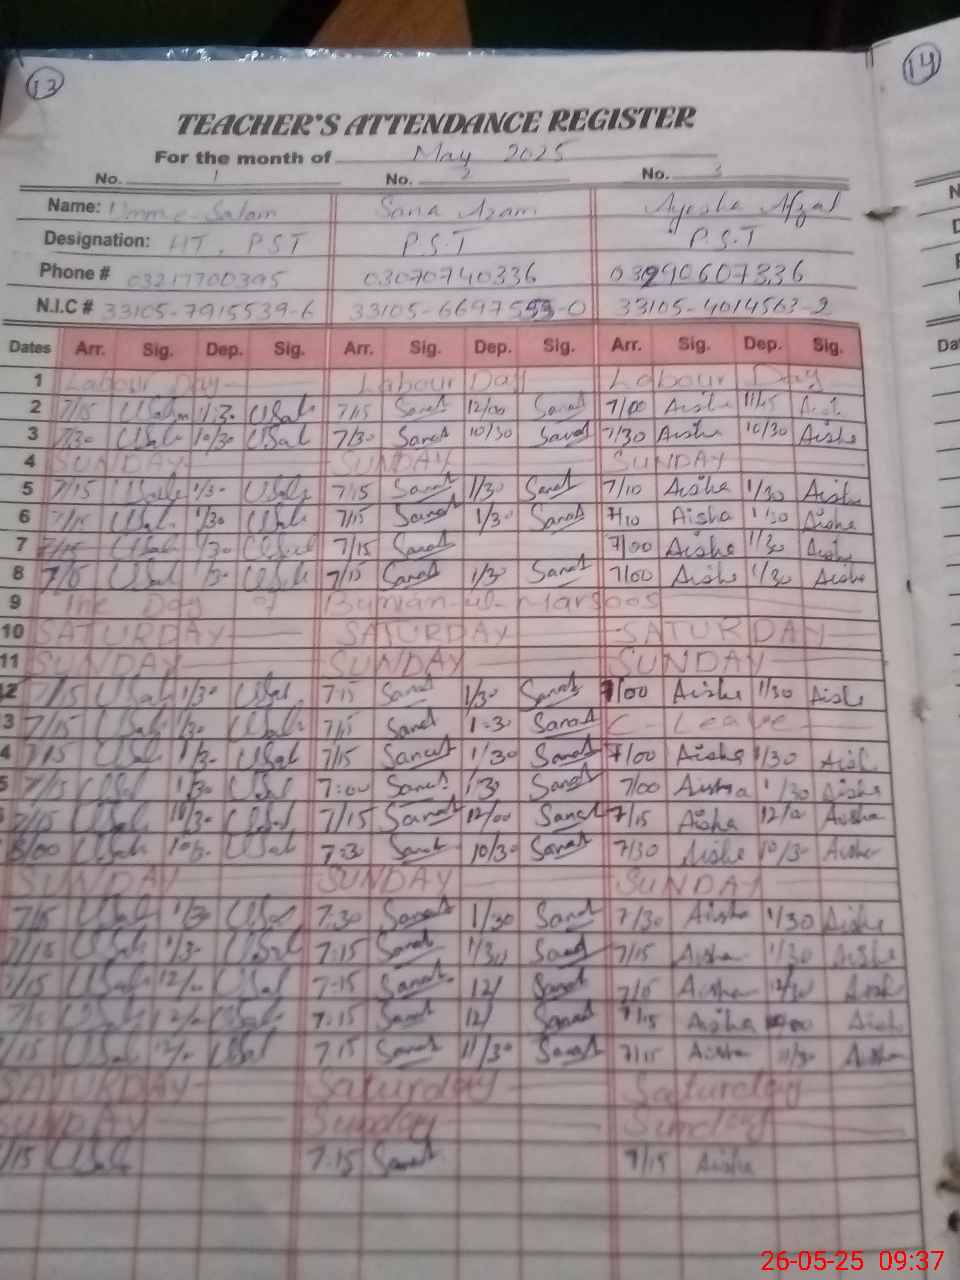 13
14
TEACHER'S ATTENDANCE REGISTER
For the month of May 2025
No. 1 No. 2 No. 3
Name: Umme-Salam Sana Azam Ayesha Afzal
Designation: HT. PST P.S.T P.S.T
Phone # 03217700395 03070740336 03290607336
N.I.C # 33105-7915539-6 33105-6697593-0 33105-4014563-2
Dates Arr. Sig. Dep. Sig. Arr. Sig. Dep. Sig. Arr. Sig. Dep. Sig.
1 Labour Day Labour Day Labour Day
2 7/15 USalam 1/30 USal 7/15 Sanat 12/00 Sanat 7/00 Aisha 11/45 Aish
3 7/30 USal 10/30 USal 7/30 Sanat 10/30 Sanat 7/30 Aisha 10/30 Aisha
4 SUNDAY SUNDAY SUNDAY
5 7/15 USal 1/30 USal 7/15 Sanat 1/30 Sanat 7/10 Aisha 1/30 Aisha
6 7/15 USal 1/30 USal 7/15 Sanat 1/30 Sanat 7/10 Aisha 1/30 Aisha
7 7/15 USal 1/30 USal 7/15 Sanat 7/00 Aisha 1/30 Aisha
8 7/15 USal 1/30 USal 7/15 Sanat 1/30 Sanat 7/00 Aisha 1/30 Aisha
9 The Day of Bunyan-ul-Marsoos
10 SATURDAY SATURDAY SATURDAY
11 SUNDAY SUNDAY SUNDAY
12 7/15 USal 1/30 USal 7:15 Sanat 1/30 Sanat 7/00 Aisha 1/30 Aisha
3 7/15 USal 1/30 USal 7/15 Sanat 1:30 Sanat C-Leave
4 7/15 USal 1/30 USal 7/15 Sanat 1/30 Sanat 7/00 Aisha 1/30 Aish
5 7/15 USal 1/30 USal 7:00 Sanat 1:30 Sanat 7/00 Aisha 1/30 Aisha
7/15 USal 10/30 USal 7/15 Sanat 12/00 Sanat 7/15 Aisha 12/00 Aisha
8/00 USal 10/30 USal 7:30 Sanat 10/30 Sanat 7/30 Aisha 10/30 Aisha
SUNDAY SUNDAY SUNDAY
7/15 USal 1/30 USal 7:30 Sanat 1/30 Sanat 7/30 Aisha 1/30 Aisha
7/15 USal 1/30 USal 7:15 Sanat 1/30 Sanat 7/15 Aisha 1/30 Aisha
7/15 USal 12/ USal 7-15 Sanat 12/ Sanat 7/15 Aisha 12/30 Aish
7/15 USal 12/ USal 7:15 Sanat 12/ Sanat 7/15 Aisha Aish
7/15 USal 12/ USal 7:15 Sanat 11/30 Sanat 7/15 Aisha 11/30 Aisha
SATURDAY Saturday Saturday
SUNDAY Sunday Sunday
7/15 USal 7:15 Sanat 7/15 Aisha
26-05-25 09:37